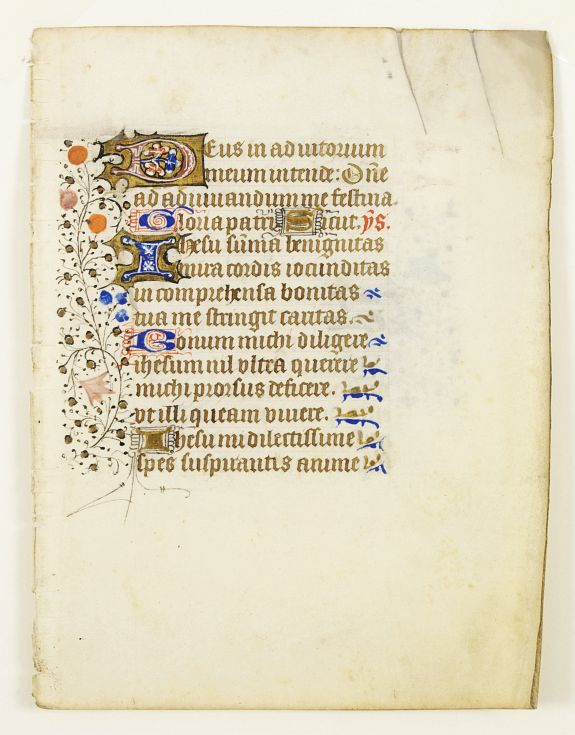 Deus in adiutorium
meum intende: Dñe
ad adiuuandum me festina.
Gloria patri Sicut. ps.
Ihesu sum̃a benignitas
mira cordis iocunditas
incomprehensa bonitas
tua me stringit caritas.
Bonum michi diligere
ihesum nil vltra querere
michi prorsus deficere.
vt illi queam viuere.
Ihesu mi dilectissime
spes suspirantis anime